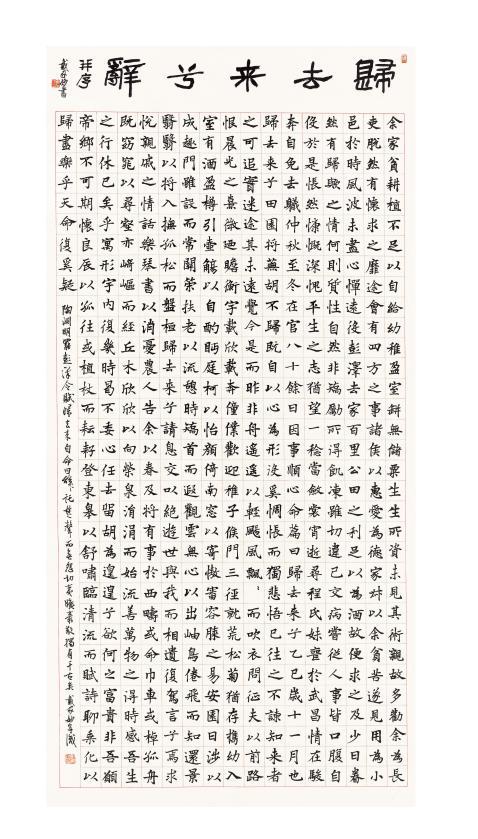 歸去来兮辭
并序
戴家妙書
余家貧耕植不足以自給幼稚盈室缾無儲粟生生所資未見其術親故多勸余為長
吏脫然有懷求之靡途會有四方之事諸侯以惠愛為德家叔以余貧苦遂見用為小
邑於時風波未盡心憚遠役彭澤去家百里公田之利足以為酒故便求之及少日眷
然有歸歟之情何則質性自然非矯勵所得飢凍雖切違己交病嘗從人事皆口腹自
役於是悵然慷慨深愧平生之志猶望一稔當斂裳宵逝尋程氏妹喪於武昌情在駿
奔自免去職仲秋至冬在官八十餘日因事順心命篇曰歸去来兮乙巳歲十一月也
歸去来兮田園將蕪胡不歸既自以心為形役奚惆悵而獨悲悟已往之不諫知来者
之可追實迷途其未遠覺今是而昨非舟遥遥以輕颺風飄飄而吹衣問征夫以前路
恨晨光之熹微乃瞻衡宇載欣載奔僮僕歡迎稚子候門三徑就荒松菊猶存攜幼入
室有酒盈樽引壺觴以自酌眄庭柯以怡顏倚南窗以寄傲審容膝之易安園日涉以
成趣門雖設而常關策扶老以流憩時矯首而遐觀雲無心以出岫鳥倦飛而知還景
翳翳以將入撫孤松而盤桓歸去来兮請息交以絶遊世與我而相遺復駕言兮焉求
悅親戚之情話樂琴書以消憂農人告余以春及將有事於西疇或命巾車或棹孤舟
既窈窕以尋壑亦崎嶇而經丘木欣欣以向榮泉涓涓而始流善萬物之得時感吾生
之行休已矣乎寓形宇內復幾時曷不委心任去留胡為遑遑兮欲何之富貴非吾願
帝鄉不可期懷良辰以孤往或植杖而耘耔登東皋以舒嘯臨清流而賦詩聊乘化以
歸盡樂乎天命復奚疑
陶淵明罷彭澤令賦歸去来自命曰辭